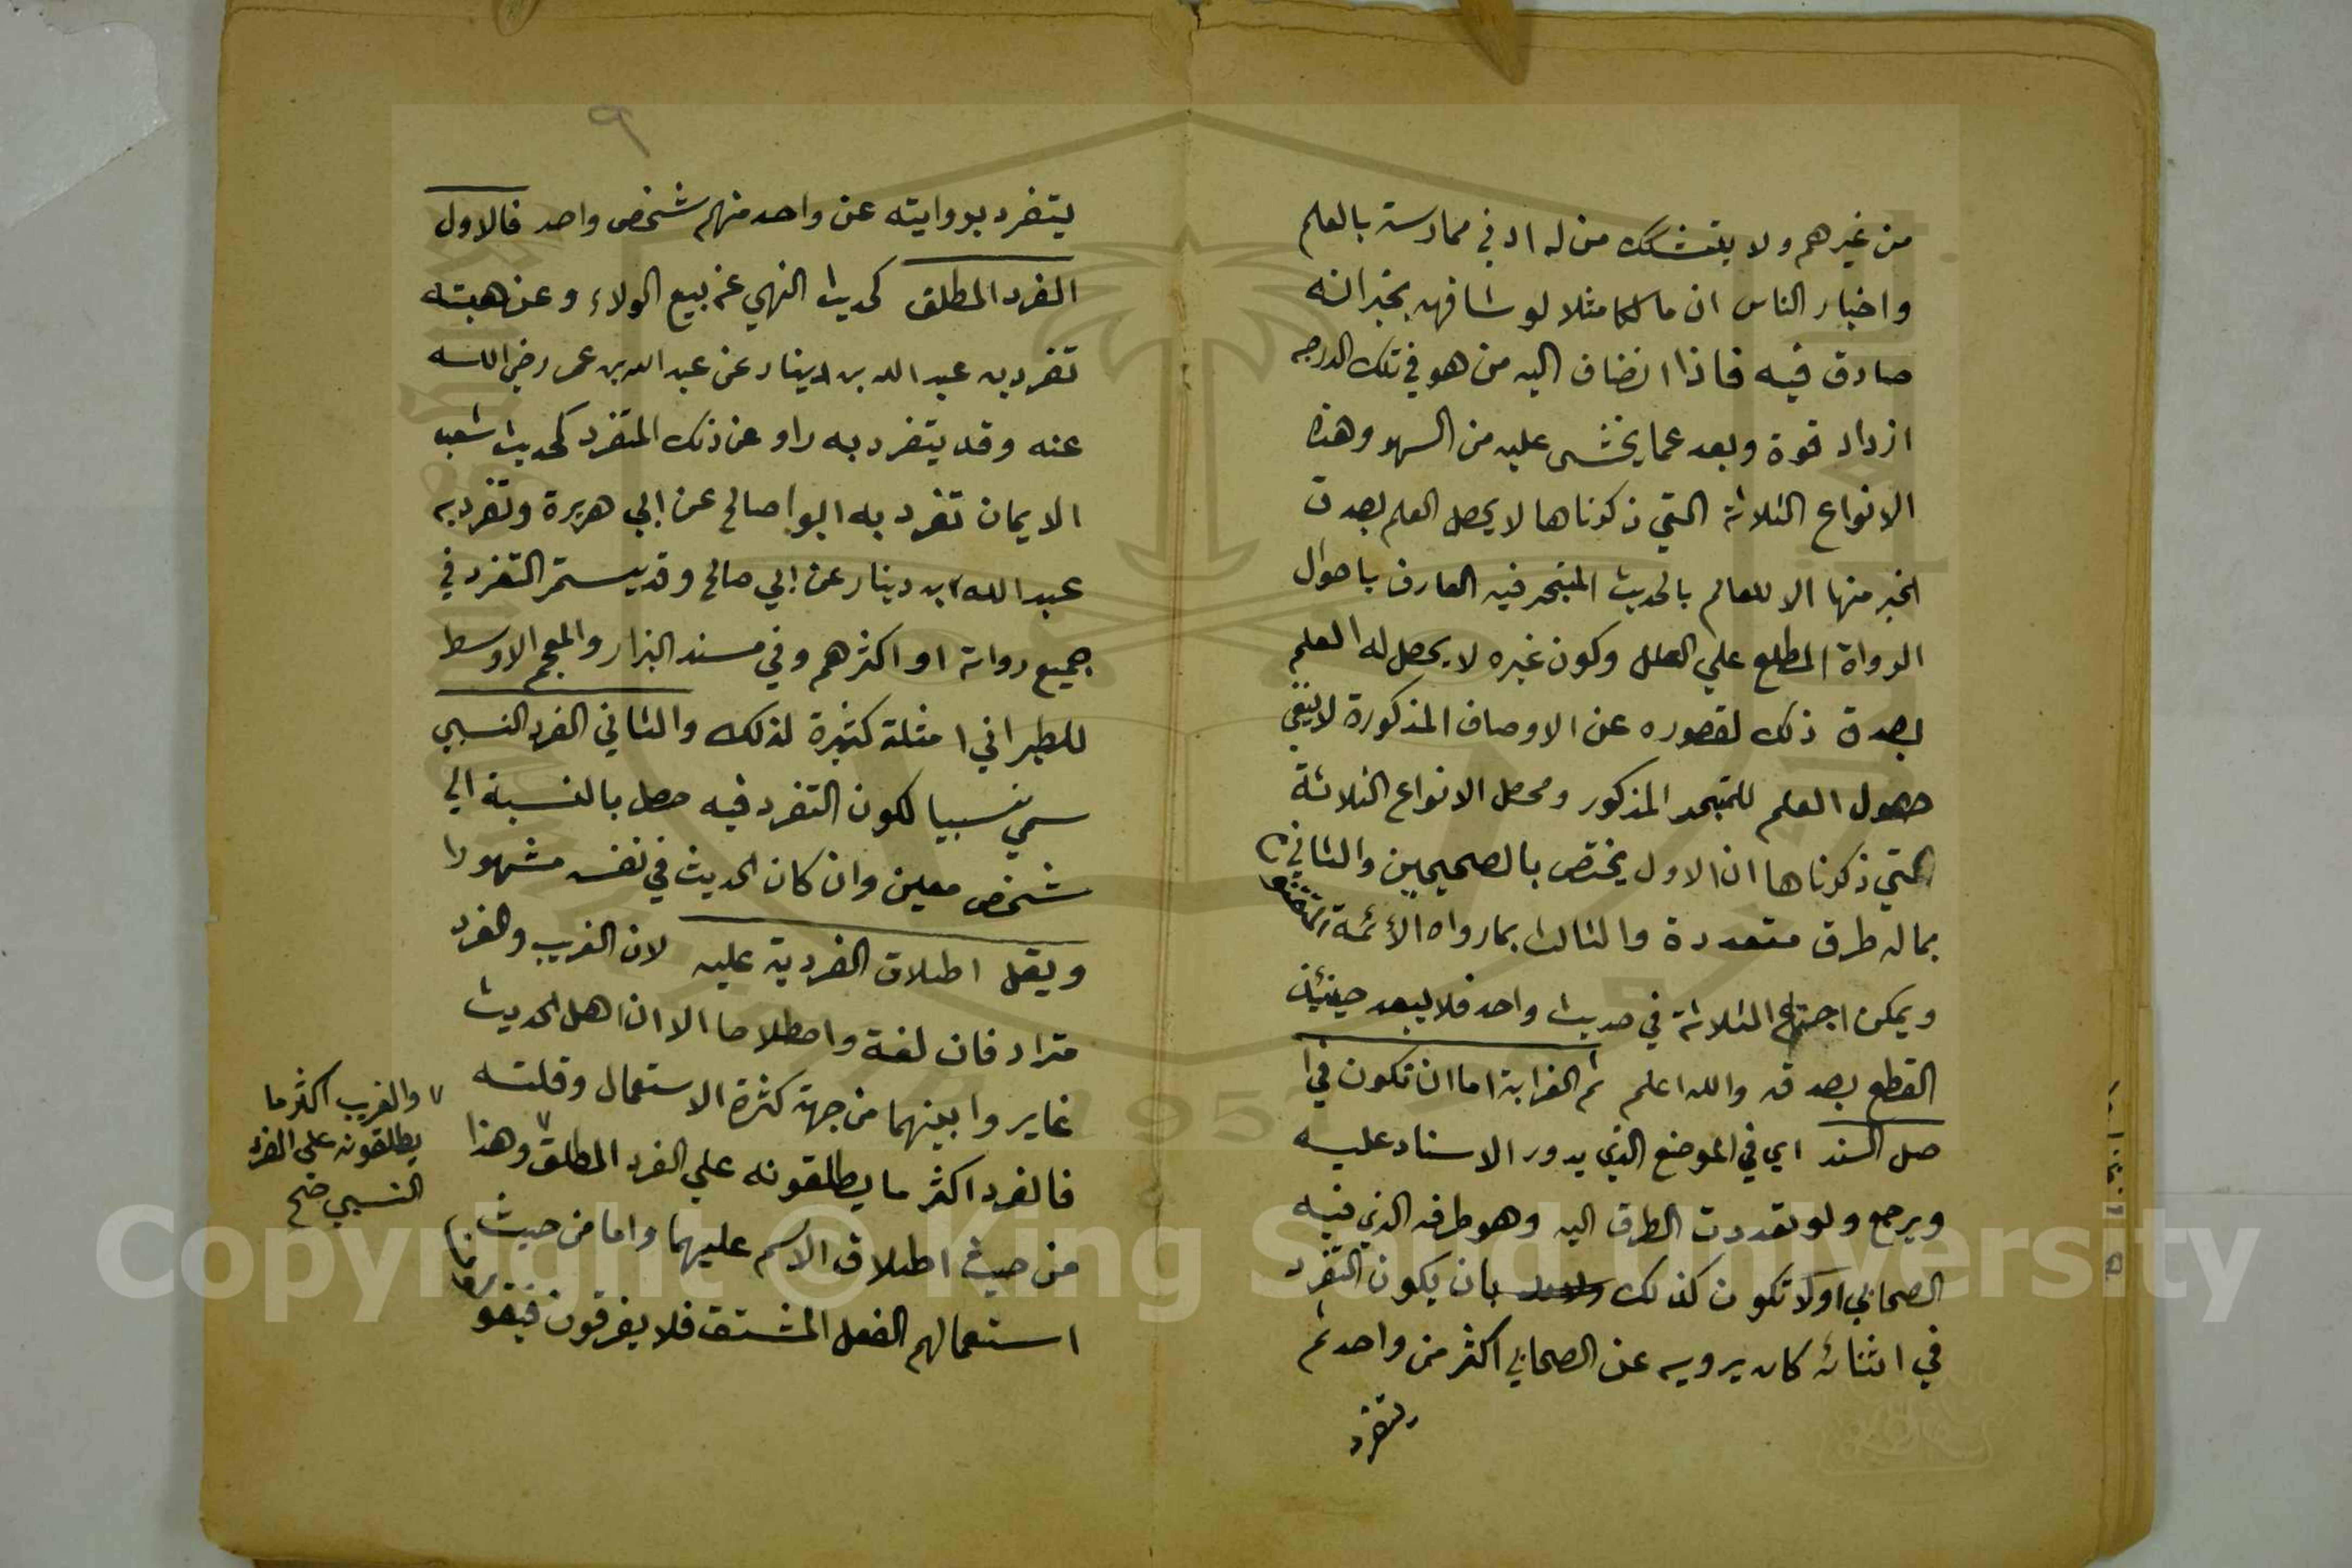 من غيرهم ولا يتشكك من له ادني ممارسة بالعلم
واخبار الناس ان مالكا مثلا لو شافهه بخبر انه
صادق فيه فاذا انضاف اليه من هو في تلك الدرجه
ازداد قوة وبعد عما يخشى عليه من السهو وهذه
الانواع الثلاثة التي ذكرناها لا يحصل العلم بصدق
الخبر منها الا للعالم بالحديث المتبحر فيه العارف باحوال
الرواة المطلع علي العلل وكون غيره لا يحصل له العلم
بصدق ذلك لقصوره عن الاوصاف المذكورة لا ينفي
حصول العلم للمتبحر المذكور ومحصل الانواع الثلاثة
التي ذكرناها ان الاول يختص بالصحيحين والثاني
بما له طرق متعددة والثالث بما رواه الأئمة
ويمكن اجتماع الثلاثة في حديث واحد فلا يبعد حينئذ
القطع بصدقه والله اعلم ثم الغرابة اما ان تكون في ا
صل السند اي في الموضع الذي يدور الاسناد عليه
ويرجع ولو تعددت الطرق اليه وهو طرفه الذي فيه
الصحابي اولا تكون كذلك بان يكون التفرد
في اثنائه كان يرويه عن الصحابي اكثر من واحد ثم
يتفرد
٩
يتفرد بروايته عن واحد منهم شخص واحد فالاول
الفرد المطلق كحديث النهي عن بيع الولاء وعن هبته
تفرد به عبد الله بن دينار عن عبد الله بن عمر رضي الله
عنه وقد يتفرد به راو عن ذلك المتفرد كحديث شعب
الايمان تفرد به ابوا صالح عن ابي هريرة وتفرد به
عبد الله ابن دينار عن ابي صالح وقد يستمر التفرد في
جميع رواته او اكثرهم وفي مسند البزار والمعجم الاوسط
للطبراني امثلة كثيرة لذلك والثاني الفرد النسبي
سمي نسبيا لكون التفرد فيه حصل بالنسبة الي
شخص معين وان كان الحديث في نفسه مشهورا
ويقل اطلاق الفردية عليه لان الغريب والفرد
مترادفان لغة واصطلاحا الا ان اهل الحديث
غايروا بينهما من جهة كثرة الاستعمال وقلته
فالفرد اكثر ما يطلقونه علي الفرد المطلق وهذا
من حيث اطلاق الاسم عليهما واما من حيث
استعمالهم الفعل المشتق فلا يفرقون فيقو
والغريب اكثر ما
يطلقونه على الفرد
النسبي صح
Copyright © King Saud University
1957